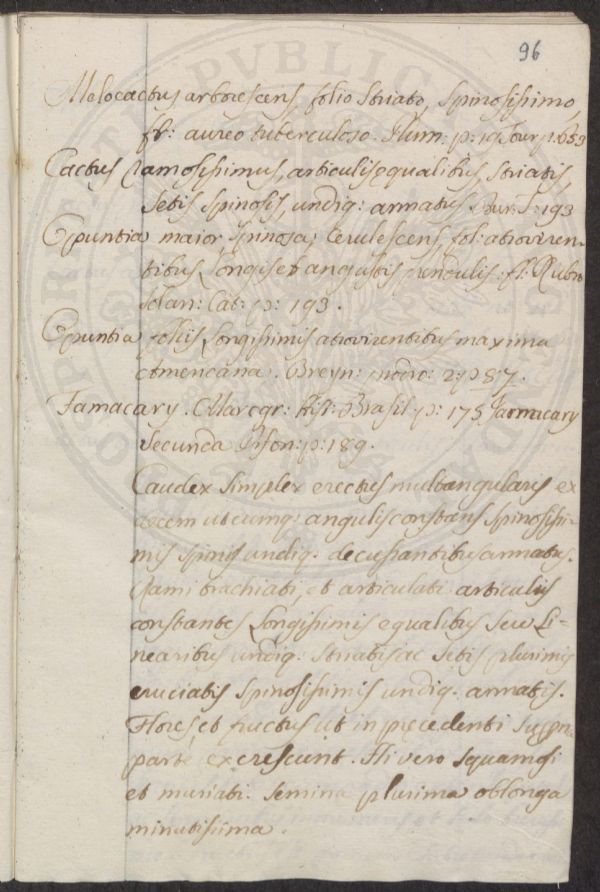 96
Melocactus arborescens, folio Striato, Spinosissimo,
fl: aureo tuberculoso. Plum: p: 19 Tour p: 653
Cactus Ramosissimus, articulis equalibus, Striatis,
Setis Spinosis, undiq: armatus Bur: T: 193
Opuntia maior Spinosa; Cerulescens, fol: atroviren-
tibus Longis et angustis fl: Rubro
Sloan: Cat: p: 193.
Opuntia foliis Longissimis atrovirentibus maxima
Americana. Breyn: prodr: 2: p 87.
Jamacary. Marcgr: Hist: Brasil: p: 175 Jarmacary
Secunda Pison: p: 189.
Caudex Simplex erectus multangularis ex
decem utcumq: angulis constans Spinosissi-
mis Spinis undiq: decussantibus armatus.
Rami brachiati, et articulati articulis
constantes Longissimis equalibus seu Li-
nearibus undiq: Striatis ac Setis plurimis
cruciatis Spinosissimis undiq: armatis.
Flores et fructus ut in precedenti Supr
parte excrescunt. Hi vero Squamosi
et muriati. Semina plurima oblonga
minutissima.